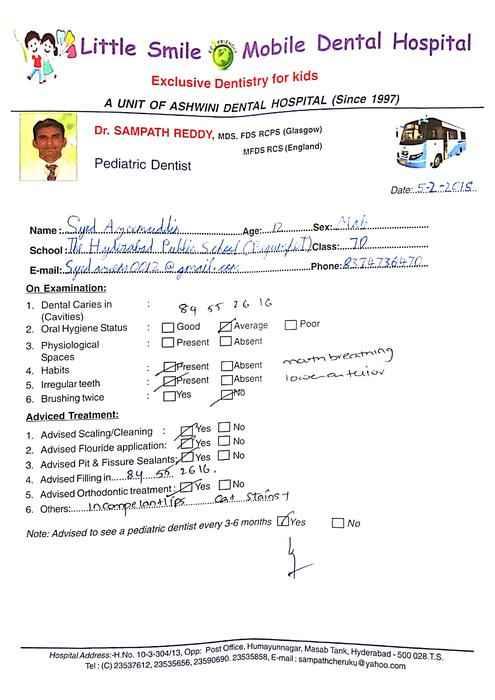 Little Smile Mobile Dental Hospital
Exclusive Dentistry for kids
A UNIT OF ASHWINI DENTAL HOSPITAL (Since 1997)
Dr. SAMPATH REDDY, MDS. FDS RCPS (Glasgow)
MFDS RCS (England)
Pediatric Dentist
Date: 5-2-2015
Name: Syed Age: 12 Sex: Male
School: The Hyderabad Public School (Begumpet) Class: 7D
E-mail: @gmail.com Phone: 8374736470
On Examination:
1. Dental Caries in (Cavities) : 84 55 26 16
2. Oral Hygiene Status : Good Average Poor
3. Physiological Spaces : Present Absent
4. Habits : Present Absent mouth breathing
5. Irregular teeth : Present Absent lower anterior
6. Brushing twice : Yes No
Adviced Treatment:
1. Advised Scaling/Cleaning : Yes No
2. Advised Flouride application: Yes No
3. Advised Pit & Fissure Sealants: Yes No
4. Advised Filling in 84 55 26 16.
5. Advised Orthodontic treatment: Yes No
6. Others: Incompetant lips Stains +
Note: Advised to see a pediatric dentist every 3-6 months Yes No
Hospital Address:-H.No. 10-3-304/13, Opp: Post Office, Humayunnagar, Masab Tank, Hyderabad - 500 028.T.S.
Tel : (C) 23537612, 23535656, 23590690. 23535858, E-mail : sampathcheruku@yahoo.com